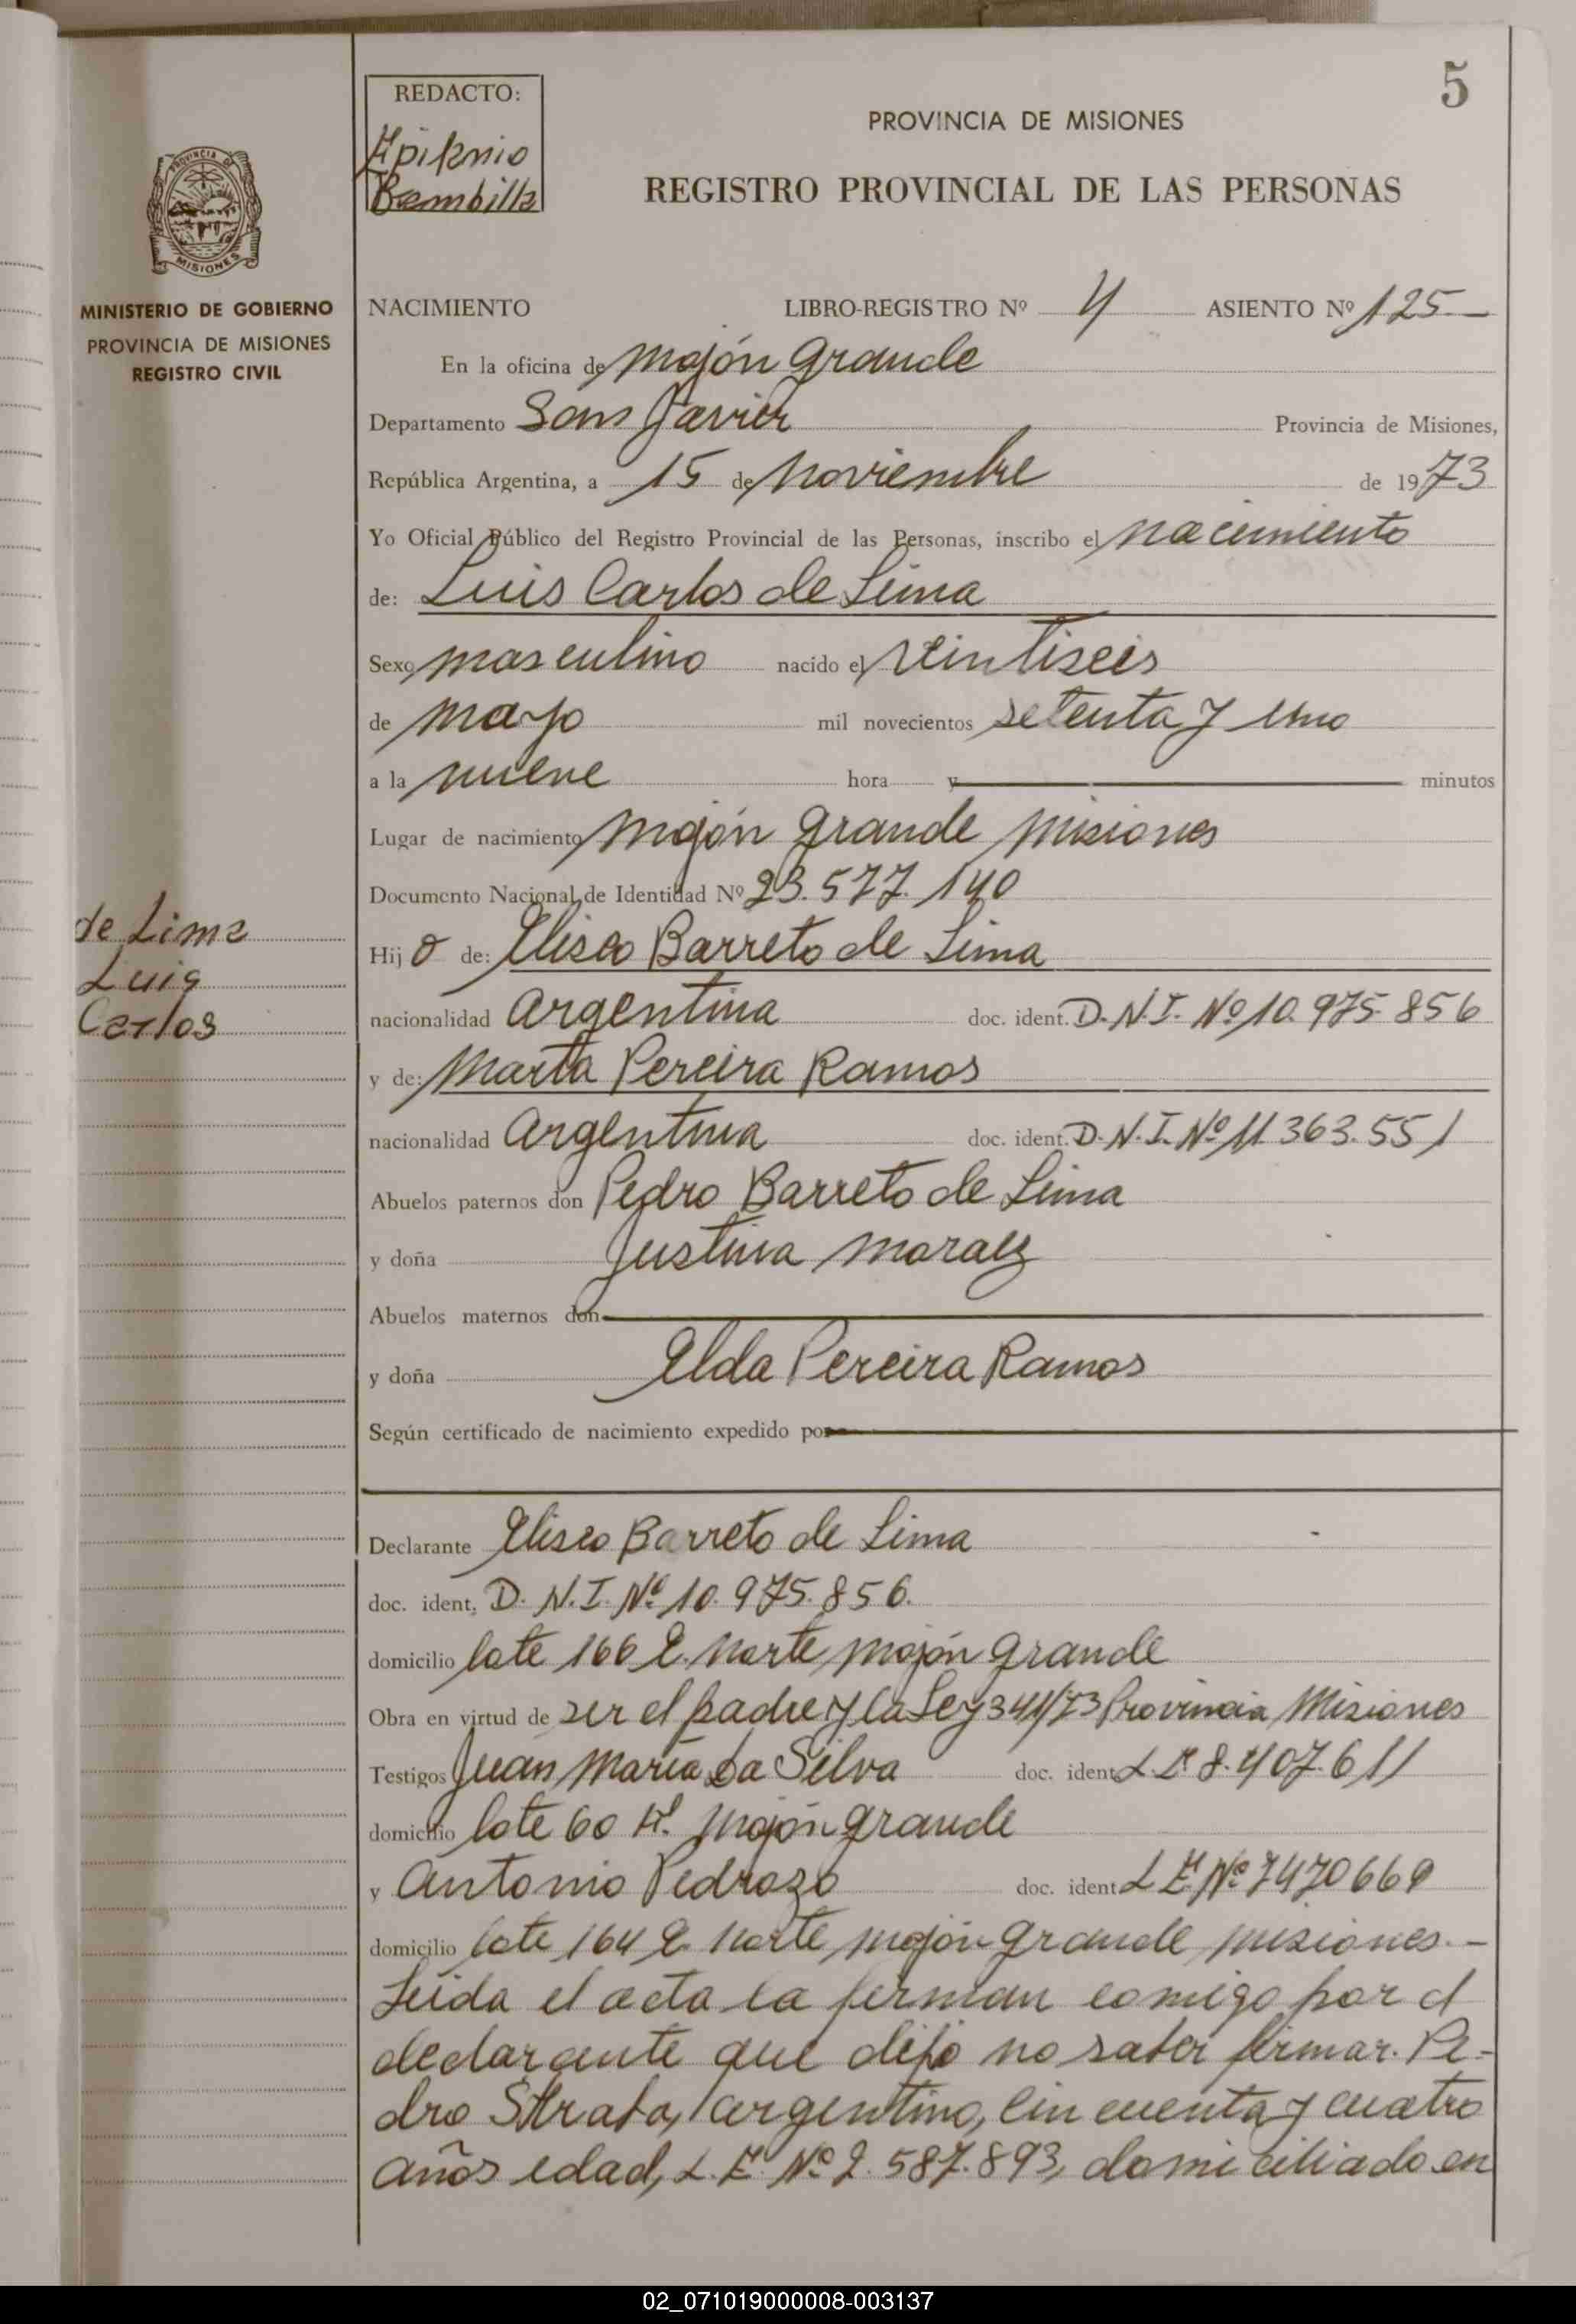 5
REDACTO:
Epifanio
Bembilla
PROVINCIA DE MISIONES
REGISTRO PROVINCIAL DE LAS PERSONAS
PROVINCIA DE
MISIONES
MINISTERIO DE GOBIERNO
PROVINCIA DE MISIONES
REGISTRO CIVIL
NACIMIENTO LIBRO-REGISTRO Nº 4 ASIENTO Nº 125.—
En la oficina de Mojón Grande
Departamento San Javier Provincia de Misiones,
República Argentina, a 15 de Noviembre de 1973
Yo Oficial Público del Registro Provincial de las Personas, inscribo el nacimiento
de: Luis Carlos de Lima
Sexo masculino nacido el veintiseis
de mayo mil novecientos setenta y uno
a la nueve hora y minutos
Lugar de nacimiento Mojón Grande Misiones
Documento Nacional de Identidad Nº 23.577.140
de Lima
Luis
Carlos
Hijo de: Eliseo Barreto de Lima
nacionalidad Argentina doc. ident. D.N.I. Nº 10.975.856
y de: Marta Pereira Ramos
nacionalidad Argentina doc. ident. D.N.I. Nº 11.363.551
Abuelos paternos don Pedro Barreto de Lima
y doña Justina Moraez
Abuelos maternos don
y doña Elda Pereira Ramos
Según certificado de nacimiento expedido por
Declarante Eliseo Barreto de Lima
doc. ident. D.N.I. Nº 10.975.856.
domicilio lote 166 L. Norte Mojón Grande
Obra en virtud de ser el padre y la Ley 341/73 Provincia Misiones
Testigos Juan María Da Silva doc. ident L.E 8.407.611
domicilio lote 60 A. Mojón Grande
y Antonio Pedrozo doc. ident L E Nº 7470669
domicilio lote 164 L. Norte Mojón Grande Misiones.—
Leida el acta la firman comigo por el
declarante que dijo no saber firmar. Pe-
dro Strada, argentino, cincuenta y cuatro
años edad, L.E. Nº 2.587.893, domiciliado en
02_071019000008-003137